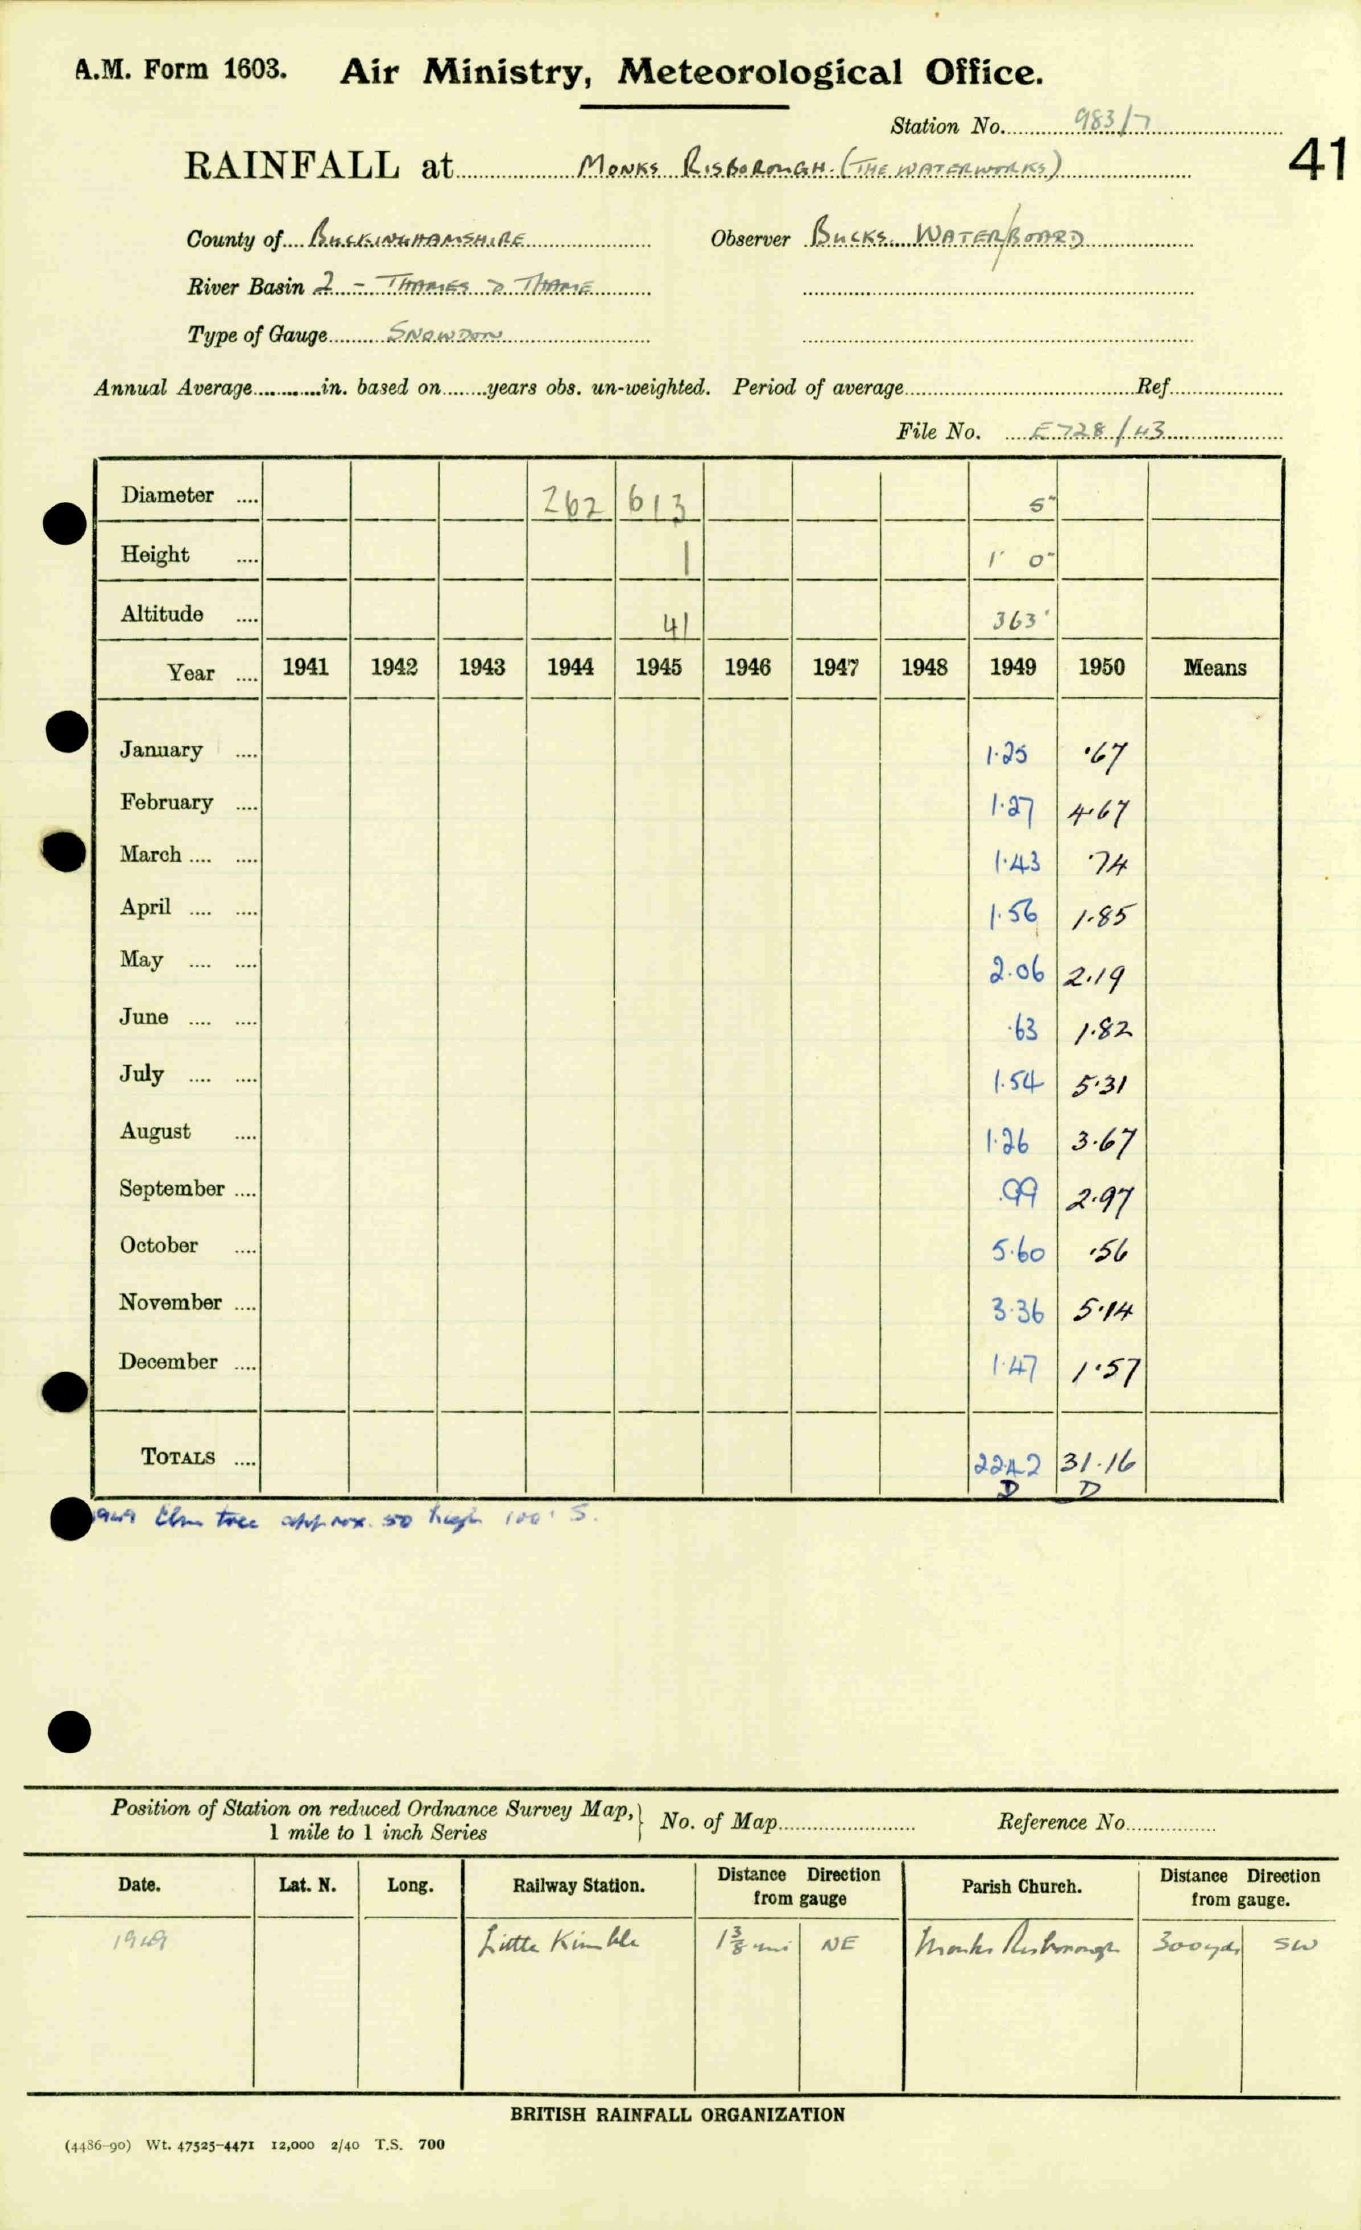 A.M. Form 1603. Air Ministry, Meteorological Office.
Station No. 983/7
RAINFALL at MONKS RISBOROUGH. (THE WATERWORKS)
41
County of BUCKINGHAMSHIRE Observer BUCKS. WATER/BOARD
River Basin 2 - THAMES & THAME
Type of Gauge SNOWDON
Annual Average............in. based on........years obs. un-weighted. Period of average........Ref........
File No. E728/43
Diameter .... 262 613 5"
Height .... 1 1' 0"
Altitude .... 41 363'
Year .... 1941 1942 1943 1944 1945 1946 1947 1948 1949 1950 Means
January .... 1.25 .67
February .... 1.27 4.67
March .... .... 1.43 .74
April .... .... 1.56 1.85
May .... .... 2.06 2.19
June .... .... .63 1.82
July .... .... 1.54 5.31
August .... 1.26 3.67
September .... .99 2.97
October .... 5.60 .56
November .... 3.36 5.14
December .... 1.47 1.57
TOTALS .... 22.42 31.16
D D
1949 Elm tree approx. 50 high 100' S.
Position of Station on reduced Ordnance Survey Map,} No. of Map........ Reference No........
1 mile to 1 inch Series
Date. Lat. N. Long. Railway Station. Distance Direction from gauge Parish Church. Distance Direction from gauge.
1949 Little Kimble 1 3/8 mi NE Monks Risborough 300 yds SW
BRITISH RAINFALL ORGANIZATION
(4486-90) Wt. 47525-4471 12,000 2/40 T.S. 700